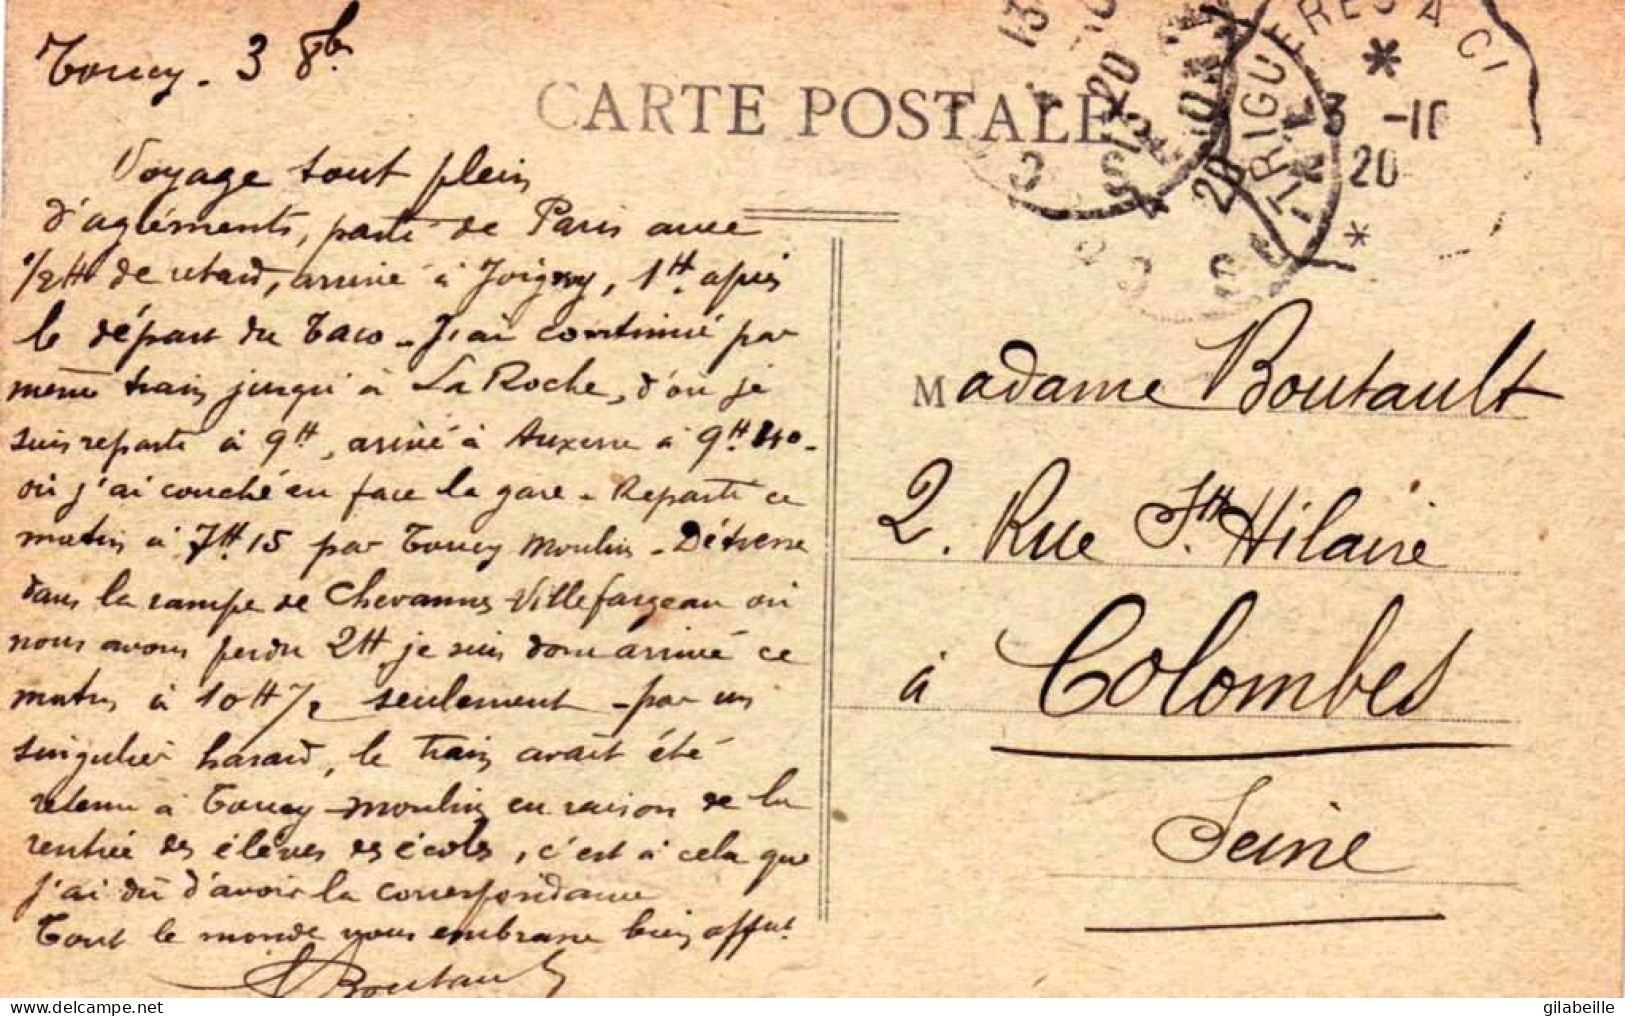 Toucy. 3 8bre
CARTE POSTALE
TRIGUERES A CI
3 -10
20
Voyage tout plein
d'agréments, parti de Paris avec
1/2H de retard, arrivé à Joigny, 1H. après
le départ du Taco - J'ai continué par
même train jusqu'à La Roche, d'où je
suis reparti à 9H, arrivé à Auxerre à 9H 40 -
où j'ai couché en face la gare - Reparti ce
matin à 7H 15 par Toucy Moulin - Détresse
dans la rampe de Chevannes-Villefargeau où
nous avons perdu 2H je suis donc arrivé ce
matin à 10H 1/2 seulement - par un
singulier hasard, le train avait été
retenu à Toucy-moulin en raison de la
rentrée des élèves des écoles, c'est à cela que
j'ai dû d'avoir la correspondance
Tout le monde vous embrasse bien affect.
Boutault
Madame Boutault
2. Rue St. Hilaire
à Colombes
Seine
gilabeille